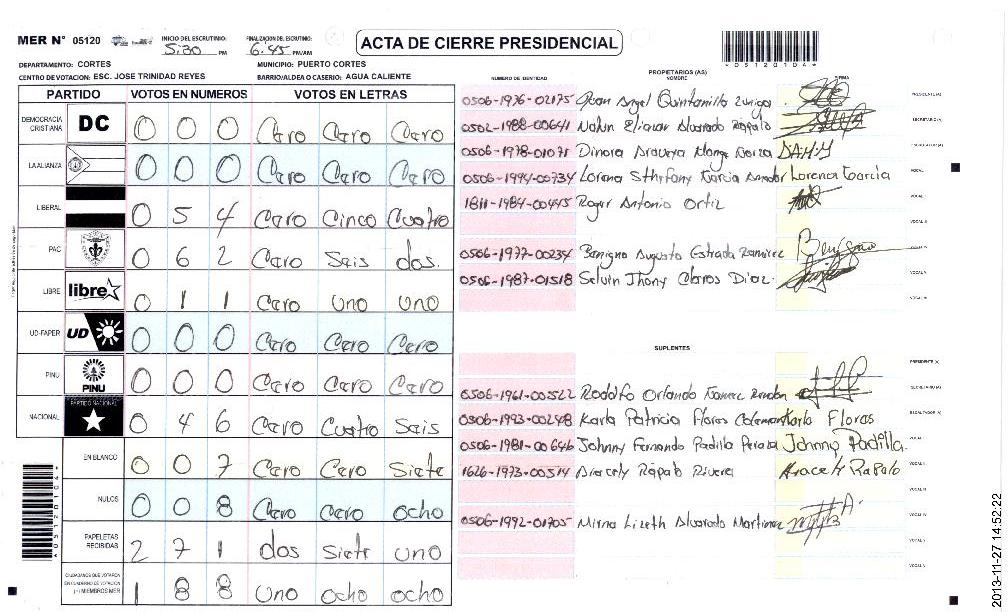 MER N° 05120 INICIO DEL ESCRUTINIO: 5:30 PM FINALIZACION DEL ESCRUTINIO: 6:45 PM/AM
ACTA DE CIERRE PRESIDENCIAL
*05120104*
DEPARTAMENTO: CORTES MUNICIPIO: PUERTO CORTES
CENTRO DE VOTACION: ESC. JOSE TRINIDAD REYES BARRIO/ALDEA O CASERIO: AGUA CALIENTE
PARTIDO VOTOS EN NUMEROS VOTOS EN LETRAS
DEMOCRACIA CRISTIANA DC 0 0 0 Cero Cero Cero
LA ALIANZA 0 0 0 Cero Cero Cero
LIBERAL 0 5 4 Cero Cinco Cuatro
PAC 0 6 2 Cero Seis dos.
LIBRE libre 0 1 1 Cero Uno Uno
UD-FAPER UD 0 0 0 Cero Cero Cero
PINU PINU 0 0 0 Cero Cero Cero
NACIONAL PARTIDO NACIONAL 0 4 6 Cero Cuatro Seis
EN BLANCO 0 0 7 Cero Cero Siete
NULOS 0 0 8 Cero Cero ocho
PAPELETAS RECIBIDAS 2 7 1 dos Siete uno
CIUDADANOS QUE VOTARON EN CUADERNO DE VOTACION (+) MIEMBROS MER 1 8 8 Uno ocho ocho
NUMERO DE IDENTIDAD PROPIETARIOS (AS) NOMBRE FIRMA
0506-1936-02175 Juan Angel Quintanilla Zuniga PRESIDENTE (A)
0502-1988-00641 Nahun Eliazar Alvarado Rapalo SECRETARIO (A)
0506-1978-01071 Dinora ESCRUTADOR (A)
0506-1994-00734 Lorena Sthefany Garcia Amador Lorena Garcia VOCAL I
1811-1984-00445 Roger Antonio Ortiz VOCAL II
VOCAL III
0506-1977-00234 Benigno Augusto Estrada Ramirez Benigno VOCAL IV
0506-1987-01518 Selvin Jhony Claros Diaz. VOCAL V
VOCAL VI
SUPLENTES
PRESIDENTE (A)
0506-1961-00522 Rodolfo Orlando SECRETARIO (A)
0506-1993-00248 Karla Patricia Flores Karla Flores ESCRUTADOR (A)
0506-1981-00646 Johnny Fernando Padilla Peraza Johnny Padilla. VOCAL I
1626-1973-00514 Aracely Rapalo Rivera Aracely Rapalo VOCAL II
VOCAL III
0506-1992-01705 Mirna Lizeth Alvarado Martinez VOCAL IV
VOCAL V
VOCAL VI
*05120104*
2013-11-27 14:52:22